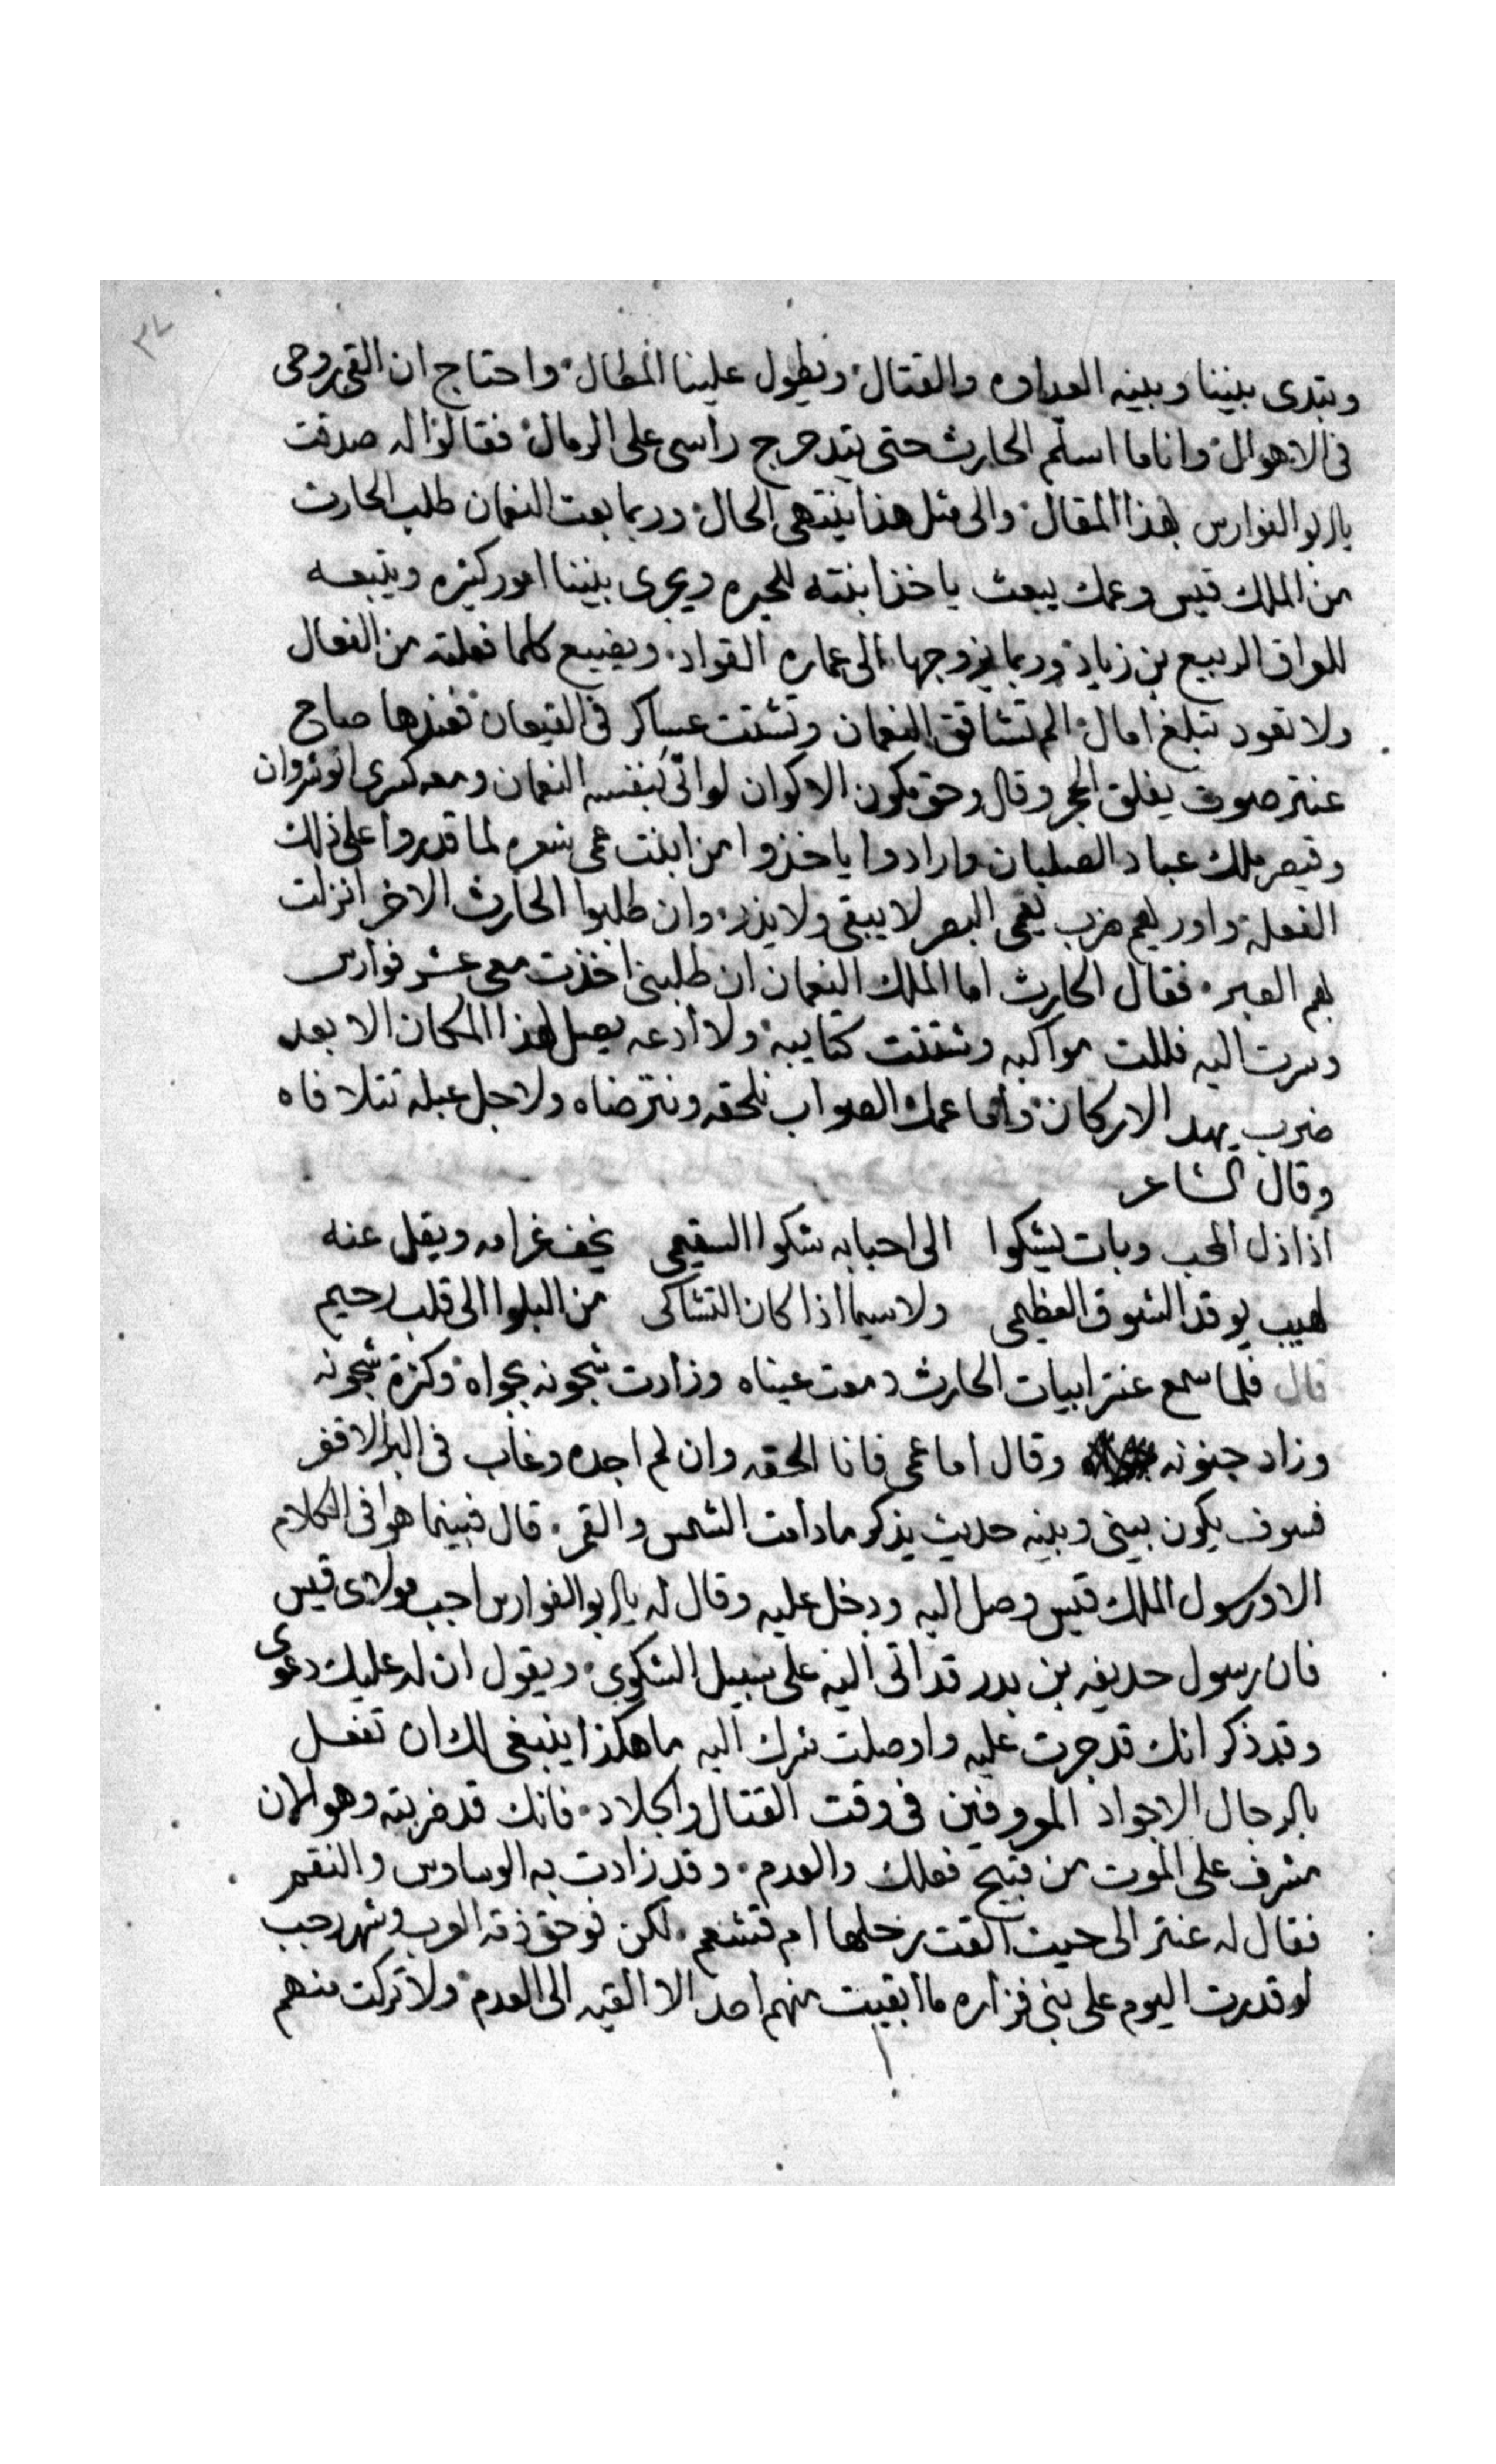 ٣٧
وبتدى بيننا وبينه العداوه والقتال ويطول علينا المطال واحتاج ان القى روحى
فى الاهوال وانا ما اسلم الحارث حتى يتدحرج راسى على الرمال فقالوا له صدقت
يا ابو الفوارس بهذا المقال والى مثل هذا ينتهى الحال وربما بعت النعمان طلب الحارث
من الملك قيس وعمك يبعث ياخذ ابنته للحيره ويجرى بيننا امور كثيره ويتبعه
للعراق الربيع بن زياد وربما يزوجها الى عماره القواد ويضيع كلما فعلته من الفعال
ولا تعود تبلغ امال الم تشاقق النعمان وتشتت عساكر فى القيعان فعندها صاح
عنتر صوت يفلق الحجر وقال وحق مكون الاكوان لو اتى بنفسه النعمان ومعه كسرى انوشروان
وقيصر ملك عباد الصلبان وارادوا ياخذوا من ابنت عمى شعره لما قدروا على ذلك
الفعله واوريهم ضرب يعمى البصر لا يبقى ولا يذر وان طلبوا الحارث الاخر انزلت
بهم العبر فقال الحارث اما الملك النعمان ان طلبنى اخذت معى عشر فوارس
وسرت اليه فللت مواكبه وشتتت كتايبه ولا ادعه يصل لهذا المكان الا بعد
ضرب يهد الاركان واما عمك الصواب نلحقه ونترضاه ولاجل عبله نتلافاه
وقال الشاعر
اذا ذل المحب وبات يشكوا الى احبابه شكوا السقيمى يخف غرامه ويقل عنه
لهيب يوقد الشوق العظيمى ولا سيما اذا كان التشاكى من البلوا الى قلب رحيم
قال فلما سمع عنتر ابيات الحارث دمعت عيناه وزادت شجونه بجواه وكثرة شجونه
وزاد جنونه وقال اما عمى فانا الحقه وان لم اجده وغاب فى البر الاقفر
فسوف يكون بينى وبينه حديث يذكر ما دامت الشمس والقمر قال فبينما هوا فى الكلام
الا ورسول الملك قيس وصل اليه ودخل عليه وقال له يا ابو الفوارس اجب مولاى قيس
فان رسول حديفه بن بدر قد اتى اليه على سبيل الشكوى ويقول ان له عليك دعوى
وقد ذكر انك قد جرت عليه واوصلت شرك اليه ما هكذا ينبغى لك ان تفعل
بالرجال الاجواد المعروفين فى وقت القتال والجلاد فانك قد ضربته وهو الان
مشرف على الموت من قبيح فعلك والعدم وقد زادت به الوساوس والنقم
فقال له عنتر الى حيت القت رحلها ام قشعم لكن وحق ذمة العرب وشهر رجب
لو قدرت اليوم على بنى فزاره ما ابقيت منهم احد الا القيه الى العدم ولا تركت منهم